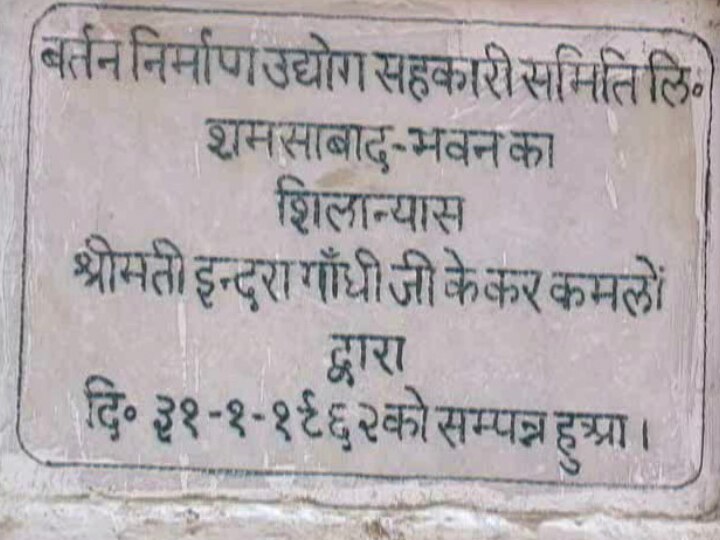 बर्तन निर्माण उद्योग सहकारी समिति लि॰
शमसाबाद-भवन का
शिलान्यास
श्रीमती इन्दरा गाँधी जी के कर कमलों
द्वारा
दि॰ ३१-१-१९६२ को सम्पन्न हुआ।